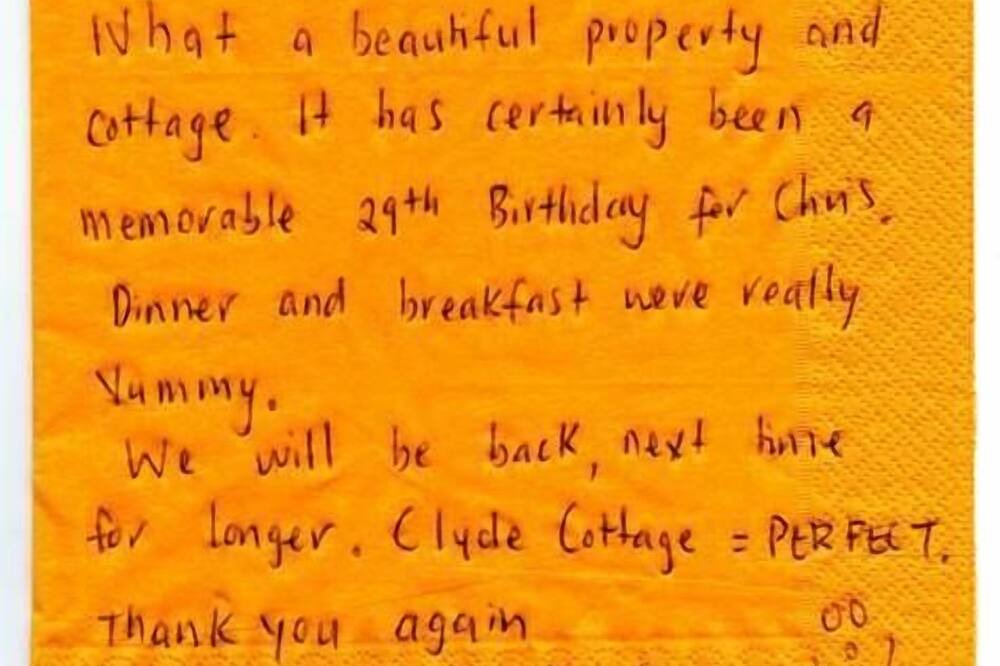 What a beautiful property and
cottage. It has certainly been a
memorable 29th Birthday for Chris.
Dinner and breakfast were really
Yummy.
We will be back, next time
for longer. Clyde Cottage = PERFECT.
Thank you again